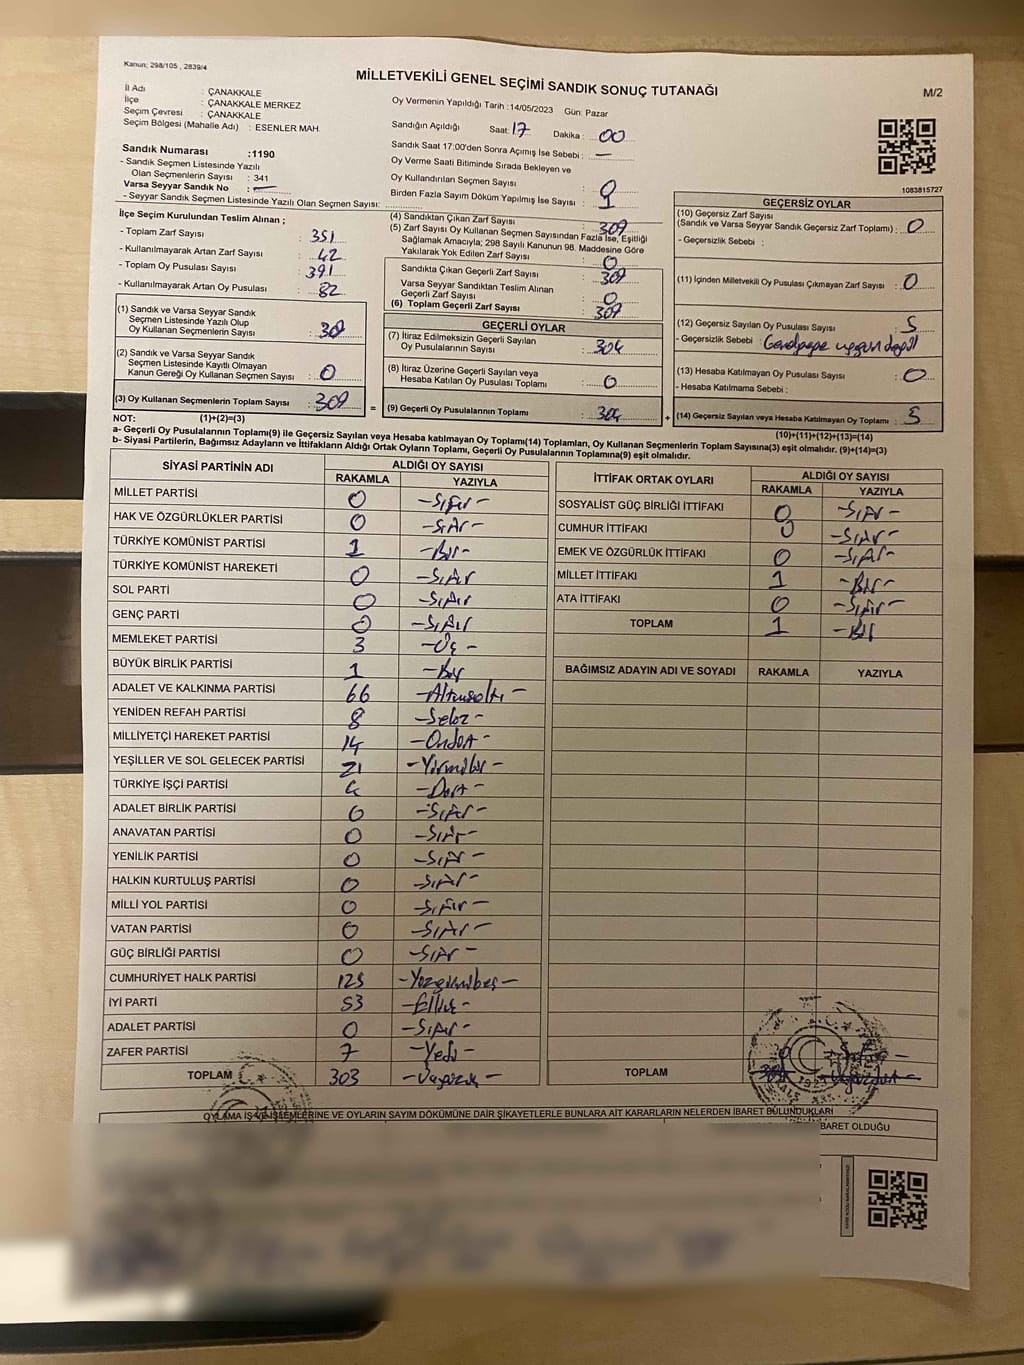 Kanun; 298/105 , 2839/4
MİLLETVEKİLİ GENEL SEÇİMİ SANDIK SONUÇ TUTANAĞI
M/2
İl Adı : ÇANAKKALE
İlçe : ÇANAKKALE MERKEZ
Seçim Çevresi : ÇANAKKALE
Seçim Bölgesi (Mahalle Adı) : ESENLER MAH.
Oy Vermenin Yapıldığı Tarih :14/05/2023 Gün: Pazar
Sandığın Açıldığı Saat: 17 Dakika : 00
Sandık Saat 17:00'den Sonra Açımış İse Sebebi : —
Oy Verme Saati Bitiminde Sırada Bekleyen ve
Oy Kullandırılan Seçmen Sayısı :
Birden Fazla Sayım Döküm Yapılmış İse Sayısı :
Sandık Numarası :1190
- Sandık Seçmen Listesinde Yazılı
Olan Seçmenlerin Sayısı : 341
Varsa Seyyar Sandık No : —
- Seyyar Sandık Seçmen Listesinde Yazılı Olan Seçmen Sayısı:
1083815727
İlçe Seçim Kurulundan Teslim Alınan ;
- Toplam Zarf Sayısı : 351
- Kullanılmayarak Artan Zarf Sayısı : 42
- Toplam Oy Pusulası Sayısı : 391
- Kullanılmayarak Artan Oy Pusulası : 82
(1) Sandık ve Varsa Seyyar Sandık
Seçmen Listesinde Yazılı Olup
Oy Kullanan Seçmenlerin Sayısı : 309
(2) Sandık ve Varsa Seyyar Sandık
Seçmen Listesinde Kayıtlı Olmayan
Kanun Gereği Oy Kullanan Seçmen Sayısı : 0
(3) Oy Kullanan Seçmenlerin Toplam Sayısı : 309
(4) Sandıktan Çıkan Zarf Sayısı : 309
(5) Zarf Sayısı Oy Kullanan Seçmen Sayısından Fazla İse, Eşitliği
Sağlamak Amacıyla; 298 Sayılı Kanunun 98. Maddesine Göre
Yakılarak Yok Edilen Zarf Sayısı : 0
Sandıkta Çıkan Geçerli Zarf Sayısı : 309
Varsa Seyyar Sandıktan Teslim Alınan
Geçerli Zarf Sayısı : 0
(6) Toplam Geçerli Zarf Sayısı : 309
GEÇERLİ OYLAR
(7) İtiraz Edilmeksizin Geçerli Sayılan
Oy Pusulalarının Sayısı : 304
(8) İtiraz Üzerine Geçerli Sayılan veya
Hesaba Katılan Oy Pusulası Toplamı : 0
= (9) Geçerli Oy Pusulalarının Toplamı : 304 +
GEÇERSİZ OYLAR
(10) Geçersiz Zarf Sayısı
(Sandık ve Varsa Seyyar Sandık Geçersiz Zarf Toplamı) : 0
- Geçersizlik Sebebi :
(11) İçinden Milletvekili Oy Pusulası Çıkmayan Zarf Sayısı : 0
(12) Geçersiz Sayılan Oy Pusulası Sayısı : 5
- Geçersizlik Sebebi : uygun değil
(13) Hesaba Katılmayan Oy Pusulası Sayısı : 0
- Hesaba Katılmama Sebebi :
(14) Geçersiz Sayılan veya Hesaba Katılmayan Oy Toplamı : 5
NOT: (1)+(2)=(3)
(10)+(11)+(12)+(13)=(14)
a- Geçerli Oy Pusulalarının Toplamı(9) ile Geçersiz Sayılan veya Hesaba katılmayan Oy Toplamı(14) Toplamları, Oy Kullanan Seçmenlerin Toplam Sayısına(3) eşit olmalıdır. (9)+(14)=(3)
b- Siyasi Partilerin, Bağımsız Adayların ve İttifakların Aldığı Ortak Oyların Toplamı, Geçerli Oy Pusulalarının Toplamına(9) eşit olmalıdır.
SİYASİ PARTİNİN ADI ALDIĞI OY SAYISI
RAKAMLA YAZIYLA
MİLLET PARTİSİ 0 -Sıfır-
HAK VE ÖZGÜRLÜKLER PARTİSİ 0 -Sıfır-
TÜRKİYE KOMÜNİST PARTİSİ 1 -Bir-
TÜRKİYE KOMÜNİST HAREKETİ 0 -Sıfır
SOL PARTİ 0 -Sıfır
GENÇ PARTİ 0 -Sıfır
MEMLEKET PARTİSİ 3 -Üç-
BÜYÜK BİRLİK PARTİSİ 1 -Bir
ADALET VE KALKINMA PARTİSİ 66 -Altmışaltı-
YENİDEN REFAH PARTİSİ 8 -Sekiz-
MİLLİYETÇİ HAREKET PARTİSİ 14 -Ondört-
YEŞİLLER VE SOL GELECEK PARTİSİ 21 -Yirmibir-
TÜRKİYE İŞÇİ PARTİSİ 4 -Dört-
ADALET BİRLİK PARTİSİ 0 -Sıfır-
ANAVATAN PARTİSİ 0 -Sıfır-
YENİLİK PARTİSİ 0 -Sıfır-
HALKIN KURTULUŞ PARTİSİ 0 -Sıfır-
MİLLİ YOL PARTİSİ 0 -Sıfır-
VATAN PARTİSİ 0 -Sıfır-
GÜÇ BİRLİĞİ PARTİSİ 0 -Sıfır-
CUMHURİYET HALK PARTİSİ 125 -Yüzyirmibeş-
İYİ PARTİ 53 -Elliüç-
ADALET PARTİSİ 0 -Sıfır-
ZAFER PARTİSİ 7 -Yedi-
TOPLAM 303 -Üçyüzüç-
İTTİFAK ORTAK OYLARI ALDIĞI OY SAYISI
RAKAMLA YAZIYLA
SOSYALİST GÜÇ BİRLİĞİ İTTİFAKI 0 -Sıfır-
CUMHUR İTTİFAKI 0 -Sıfır-
EMEK VE ÖZGÜRLÜK İTTİFAKI 0 -Sıfır-
MİLLET İTTİFAKI 1 -Bir-
ATA İTTİFAKI 0 -Sıfır-
TOPLAM 1 -Bir
BAĞIMSIZ ADAYIN ADI VE SOYADI RAKAMLA YAZIYLA
TOPLAM
OYLAMA İŞ VE İŞLEMLERİNE VE OYLARIN SAYIM DÖKÜMÜNE DAİR ŞİKAYETLERLE BUNLARA AİT KARARLARIN NELERDEN İBARET BULUNDUKLARI
BARET OLDUĞU